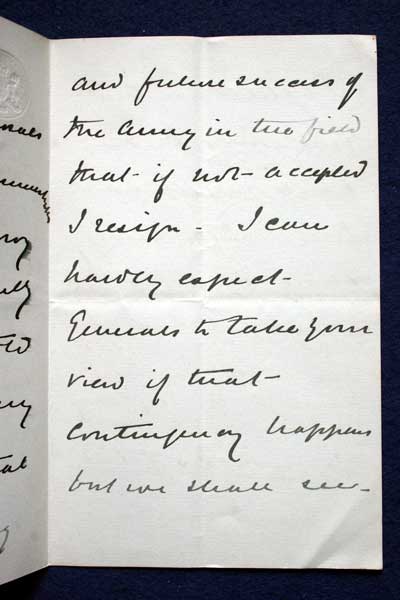 and future success of
the Army in the field
that if not accepted
I resign - I can
hardly expect
Generals to take your
view if that
contingency happens
but we shall see -